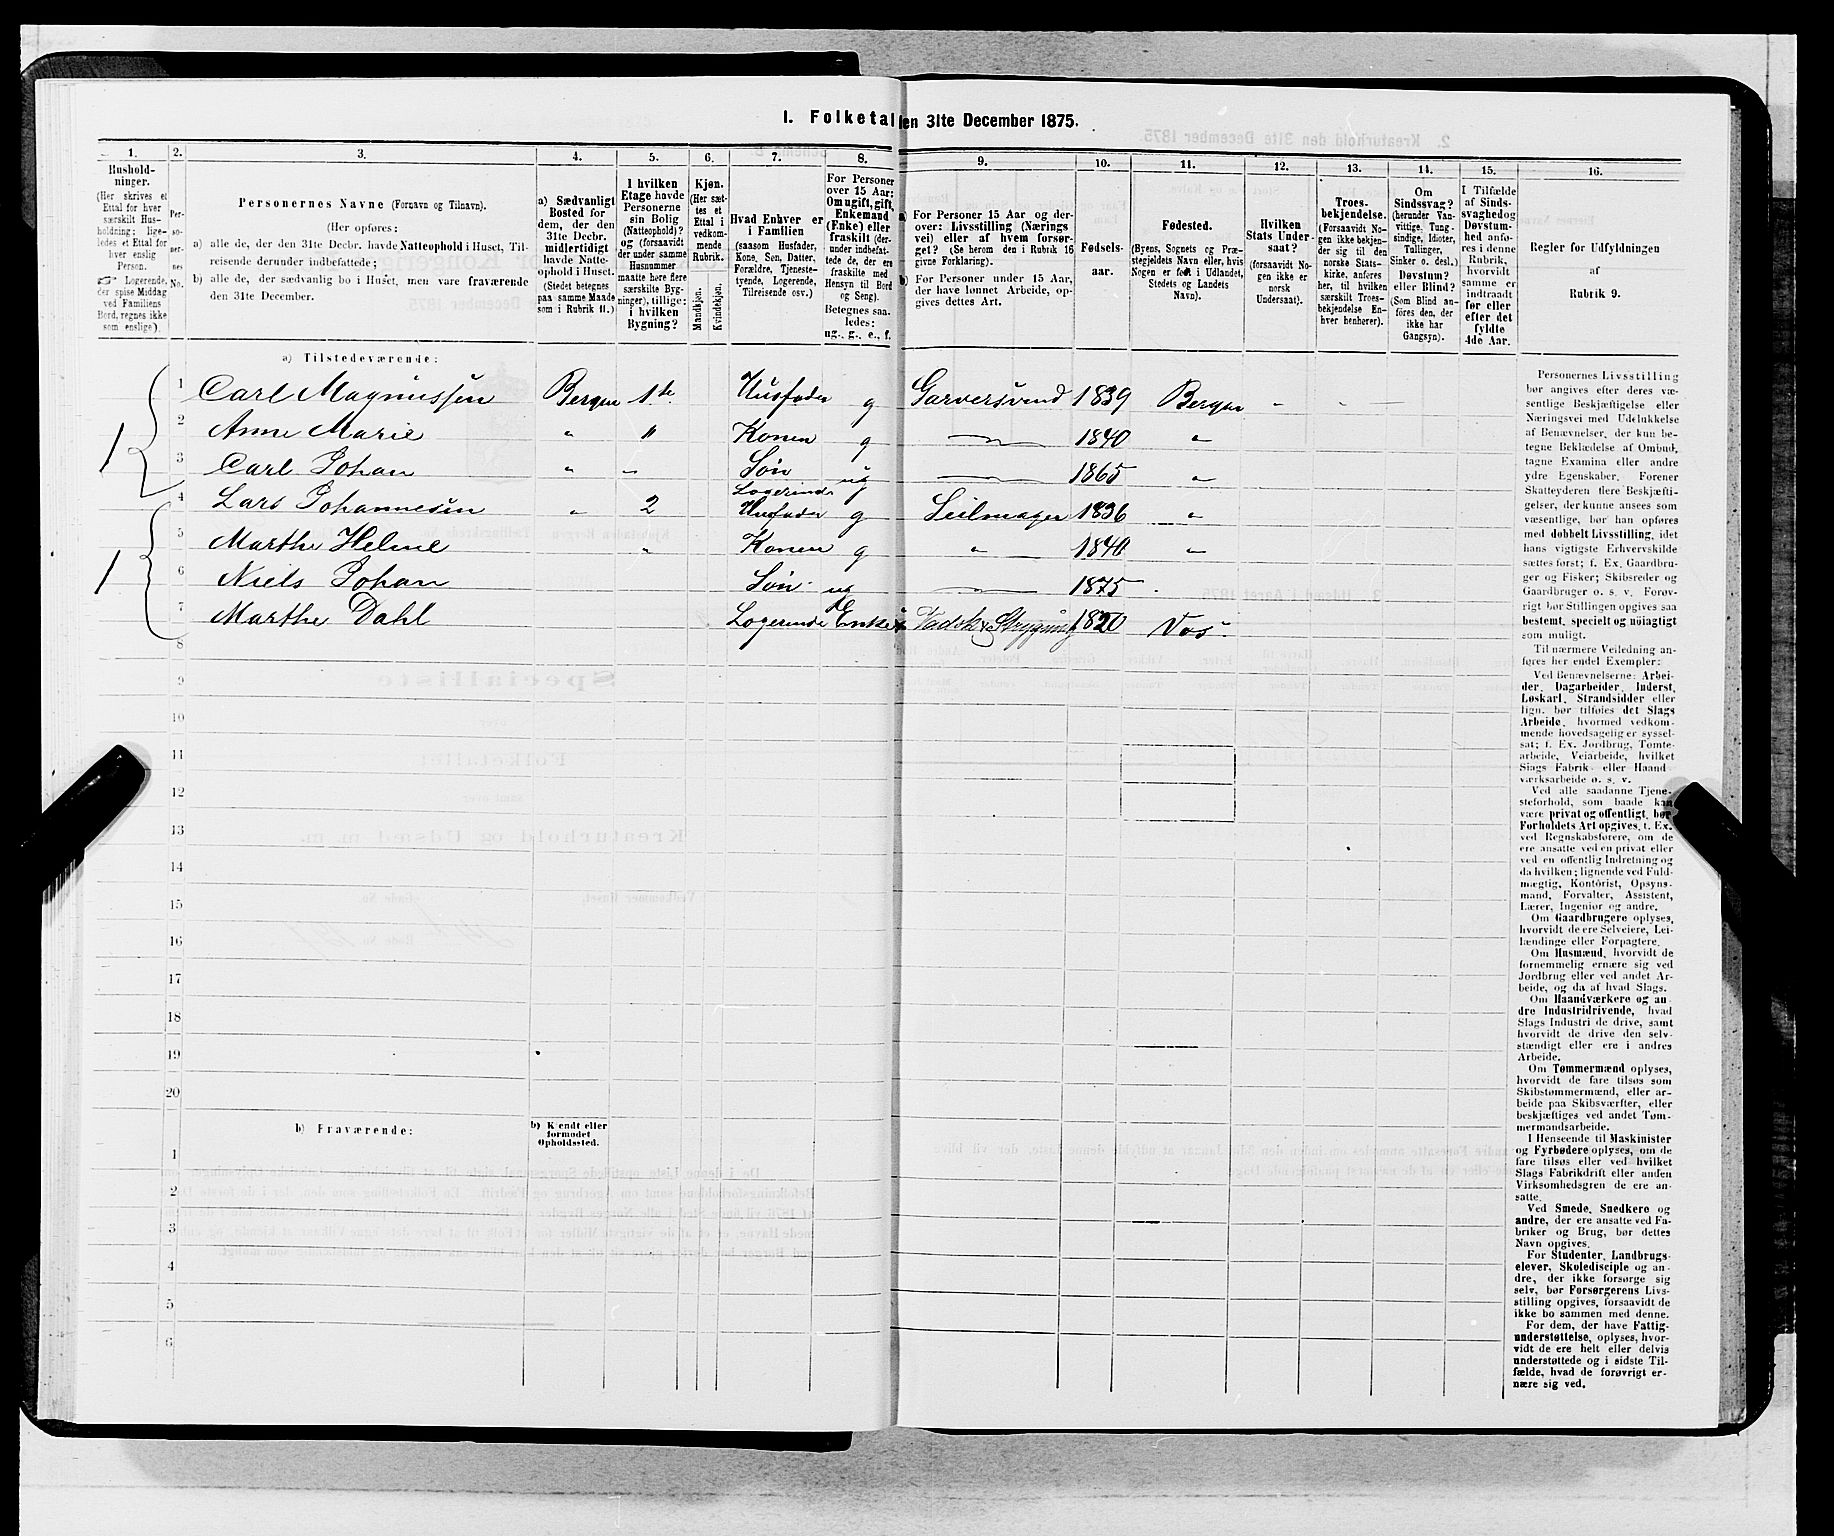 I. Folketal den 31te December 1875.
1.
Hushold-
ninger.
(Her skrives et
Ettal for hver
særskilt Hus-
holdning; lige-
ledes et Ettal for
hver enslig
Person.
Logerende,
der spise Middag
ved Familiens
Bord, regnes ikke
som enslige).
2.
Per-
so-
ner-
nes
No.
3.
Personernes Navne (Fornavn og Tilnavn).
(Her opføres:
a) alle de, der den 31te Decbr. havde Natteophold i Huset, Til-
reisende derunder indbefattede;
b) alle de, der sædvanlig bo i Huset, men vare fraværende
den 31te December.
4.
a) Sædvanligt
Bosted for
dem, der den
31te Decbr.
midlertidigt
havde Natte-
ophold i Huset.
(Stedet betegnes
paa samme Maade
som i Rubrik 11.)
5.
I hvilken
Etage havde
Personerne
sin Bolig
(Natteophold)?
og (forsaavidt
der under samme
Husnummer
maatte høre flere
særskilte Byg-
ninger), tillige:
i hvilken
Bygning?
6.
Kjøn.
(Her sæt-
tes et
Ettal i
vedkom-
mende
Rubrik.
Mandkjøn.
Kvindekjøn.
7.
Hvad Enhver er
i Familien
(saasom Husfader,
Kone, Søn, Datter,
Forældre, Tjeneste-
tyende, Logerende,
Tilreisende osv.)
8.
For Personer
over 15 Aar:
Om ugift, gift,
Enkemand
(Enke) eller
fraskilt (der-
under indbefat-
tede de, der ere
fraskilte med
Hensyn til Bord
og Seng).
Betegnes saa-
ledes:
ug., g., e., f.
9.
a) For Personer 15 Aar og der-
over: Livsstilling (Nærings
vei) eller af hvem forsør-
get? (Se herom den i Rubrik 16
givne Forklaring).
b) For Personer under 15 Aar,
der have lønnet Arbeide, op-
gives dettes Art.
10.
Fødsels-
aar.
11.
Fødested.
(Byens, Sognets og Præ-
stegjeldets Navn eller, hvis
Nogen er født i Udlandet,
Stedets og Landets
Navn).
12.
Hvilken
Stats Under-
saat?
(forsaavidt No-
gen ikke er
norsk
Undersaat).
13.
Troes-
bekjendelse.
(Forsaavidt No-
gen ikke bekjen-
der sig til den
norske Stats-
kirke, anføres
her, til hvilken
særskilt Troes-
bekjendelse En-
hver henhører).
14.
Om
Sindssvag?
(herunder Van-
vittige, Tung-
sindige, Idioter,
Tullinger,
Sinker o. desl.)
Døvstum?
eller Blind?
(Som Blind an-
føres den, der
ikke har
Gangsyn).
15.
I Tilfælde
af Sinds-
svaghed og
Døvstum-
hed anfø-
res i denne
Rubrik,
hvorvidt
samme er
indtraadt
før eller
efter det
fyldte
4de Aar.
16.
Regler for Udfyldningen
af
Rubrik 9.
a) Tilstedeværende:
1 1 Carl Magnussen Bergen 1te Husfader g Garversvend 1839 Bergen " - -
2 Anne Marie " " Konen g 1840 "
3 Carl Johan " - Søn ug 1865 "
Logerende
1 4 Lars Johannesen " 2 Husfader g Seilmager 1836 "
5 Marthe Helene " Konen g " 1840 "
6 Niels Johan Søn ug 1875
7 Marthe Dahl Logerende Enke Vadsk & Strygning 1820 Vos
8
9
10
11
12
13
14
15
16
17
18
19
20
b) Fraværende:
b) Kjendt eller
formodet
Opholdssted.
1
2
3
4
5
6
Personernes Livsstilling
bør angives efter deres væ-
sentlige Beskjæftigelse eller
Næringsvei med Udelukkelse
af Benævnelser, der kun be-
tegne Beklædelse af Ombud,
tagne Examina eller andre
ydre Egenskaber. Forener
Skatteyderen flere Beskjæfti-
gelser, der kunne ansees som
væsentlige, bør han opføres
med dobbelt Livsstilling, idet
hans vigtigste Erhvervskilde
sættes først; f. Ex. Gaardbru-
ger og Fisker; Skibsreder og
Gaardbruger o. s. v. Forøv-
rigt bør Stillingen opgives saa
bestemt, specielt og nøiagtigt
som muligt.
Til nærmere Veiledning an-
føres her endel Exempler:
Ved Benævnelserne: Arbei-
der, Dagarbeider, Inderst,
Løskarl, Strandsidder eller
lign. bør tilføies det Slags
Arbeide, hvormed vedkom-
mende hovedsagelig er syssel-
sat; f. Ex. Jordbrug, Tomte-
arbeide, Veiarbeide, hvilket
Slags Fabrik- eller Haand-
værksarbeide o. s. v.
Ved alle saadanne Tjene-
steforhold, som baade kan
være privat og offentligt, bør
Forholdets Art opgives, t. Ex.
ved Regnskabsførere, om de
ere ansatte ved en privat eller
ved en offentlig Indretning og
da hvilken; lignende ved Fuld-
mægtig, Kontorist, Opsyns-
mand, Forvalter, Assistent,
Lærer, Ingeniør og andre.
Om Gaardbrugere oplyses,
hvorvidt de ere Selveiere, Lei-
lændinge eller Forpagtere.
Om Husmænd, hvorvidt de
fornemmelig ernære sig ved
Jordbrug eller ved andet Ar-
beide, og da af hvad Slags.
Om Haandværkere og an-
dre Industridrivende, hvad
Slags Industri de drive, samt
hvorvidt de drive den selv-
stændigt eller ere i andres
Arbeide.
Om Tømmermænd oplyses,
hvorvidt de fare tilsøs som
Skibstømmermænd, eller ar-
beide paa Skibsværfter, eller
beskjæftiges ved andet Tøm-
mermandsarbeide.
I Henseende til Maskinister
og Fyrbødere oplyses, om de
fare tilsøs eller ved hvilket
Slags Fabrikdrift eller anden
Virksomhedsgren de ere an-
satte.
Ved Smede, Snedkere og
andre, der ere ansatte ved Fa-
briker og Brug, bør dettes
Navn opgives.
For Studenter, Landbrugs-
elever, Skoledisciple og an-
dre, der ikke forsørge sig
selv, bør Forsørgerens Livs-
stilling opgives, forsaavidt de
ikke bo sammen med denne.
For dem, der have Fattig-
understøttelse, oplyses, hvor-
vidt de ere helt eller delvis
understøttede og i sidste Til-
fælde, hvad de forøvrigt er-
nære sig ved.